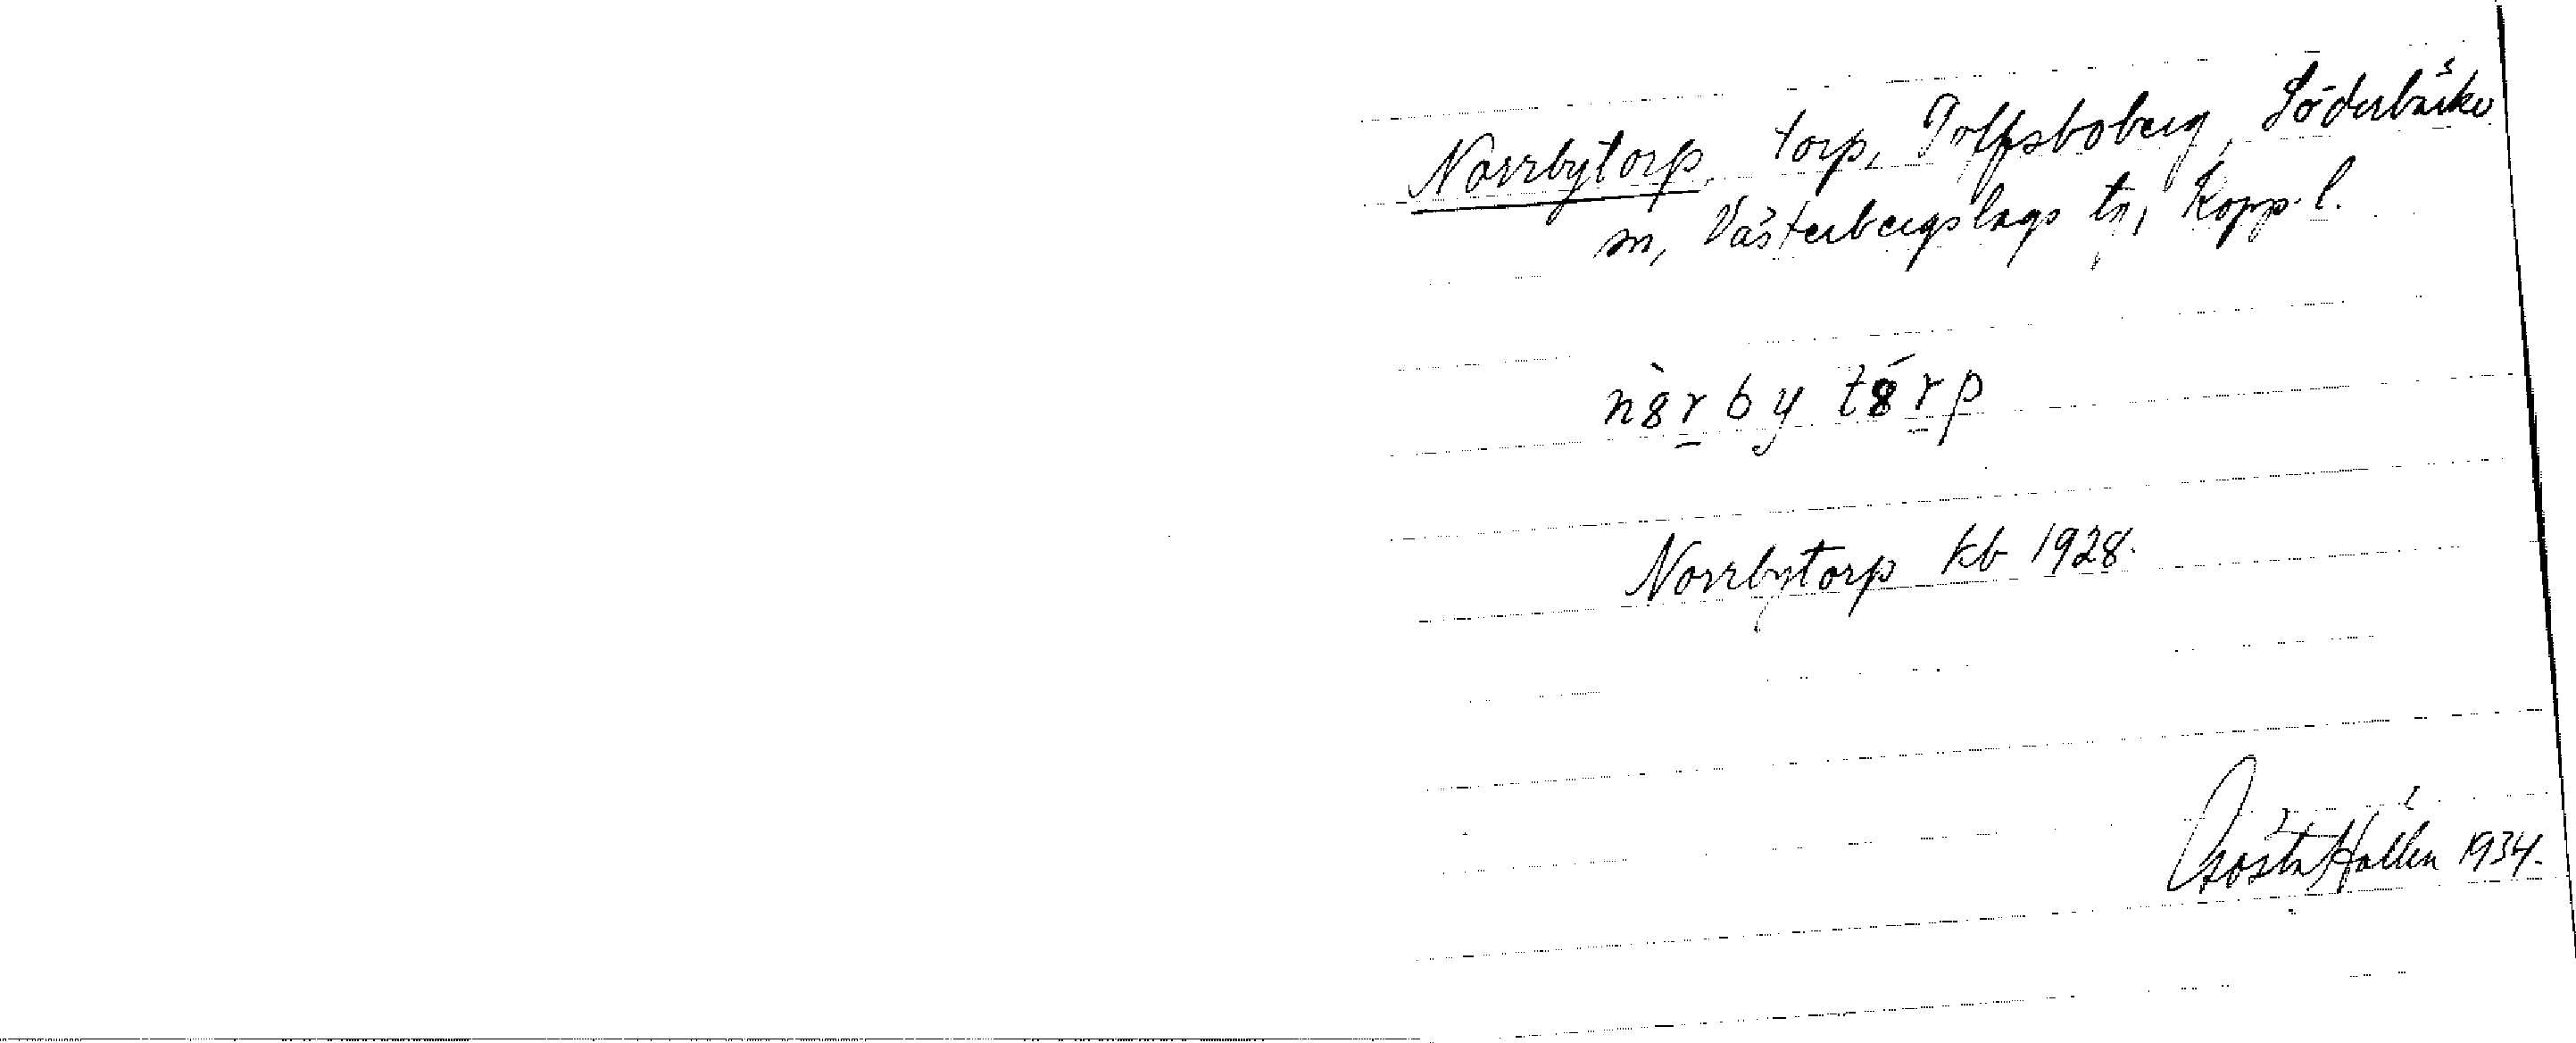 Norrbytorp, torp, Tolfsboberg, Söderbärke
sn, Västerbergslags ts, Kopp. l.
nòrby tórp
Norrbytorp kb 1928.
Gösta Hallén 1934.